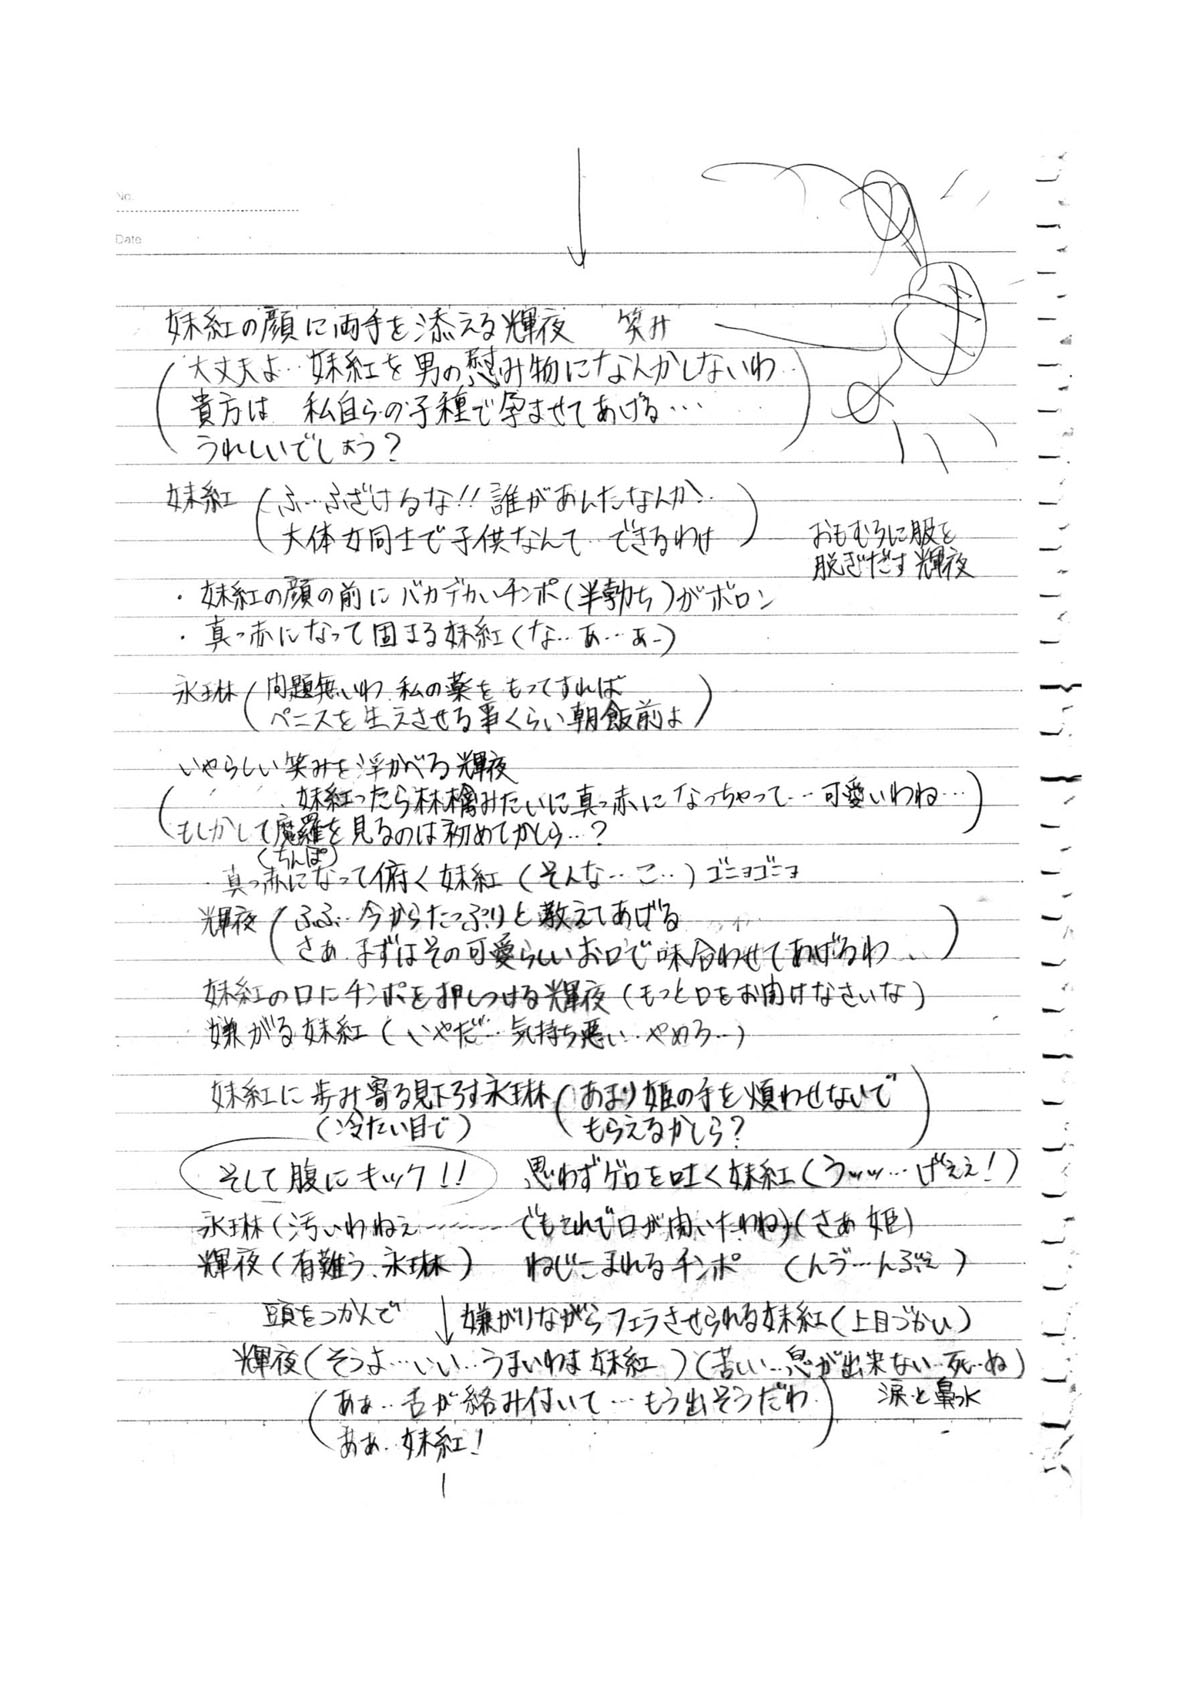 No.
Date
妹紅の顔に両手を添える輝夜 笑み
(大丈夫よ… 妹紅を男の慰み物になんかしないわ…
貴方は 私自らの子種で孕ませてあげる…
うれしいでしょう?)
妹紅 (ふ…ふざけるな!! 誰があんたなんか…
大体女同士で子供なんて… できるわけ)
おもむろに服を
脱ぎだす輝夜
・妹紅の顔の前にバカデカいチンポ(半勃ち)がボロン
・真っ赤になって固まる妹紅(な…ぁ…ぁ…)
永琳 (問題無いわ 私の薬をもってすれば
ペニスを生えさせる事くらい朝飯前よ)
いやらしい笑みを浮かべる輝夜
(妹紅ったら林檎みたいに真っ赤になっちゃって…可愛いわね…
もしかして魔羅を見るのは初めてかしら…?)
(ちんぽ)
・真っ赤になって俯く妹紅 (そんな…こ…) ゴニョゴニョ
輝夜 (ふふ…今からたっぷりと教えてあげる
さぁ まずはその可愛らしいお口で味合わせてあげるわ…)
妹紅の口にチンポを押しつける輝夜 (もっと口をお開けなさいな)
嫌がる妹紅 (いやだ…気持ち悪い…やめろ…)
妹紅に歩み寄る見下ろす永琳 (あまり姫の手を煩わせないで
(冷たい目で) もらえるかしら?)
そして腹にキック!! 思わずゲロを吐く妹紅 (うッッ…げぇぇ!)
永琳 (汚いわねぇ……でもこれで口が開いたわね)(さぁ 姫)
輝夜 (有難う、永琳) ねじこまれるチンポ (んう゛…んぶぇ)
頭をつかんで ↓嫌がりながらフェラさせられる妹紅 (上目づかい)
輝夜 (そうよ…いい…うまいわぁ妹紅) (苦しい…息が出来ない…死…ぬ)
(あぁ…舌が絡み付いて…もう出そうだわ
涙と鼻水
ああ…妹紅!)